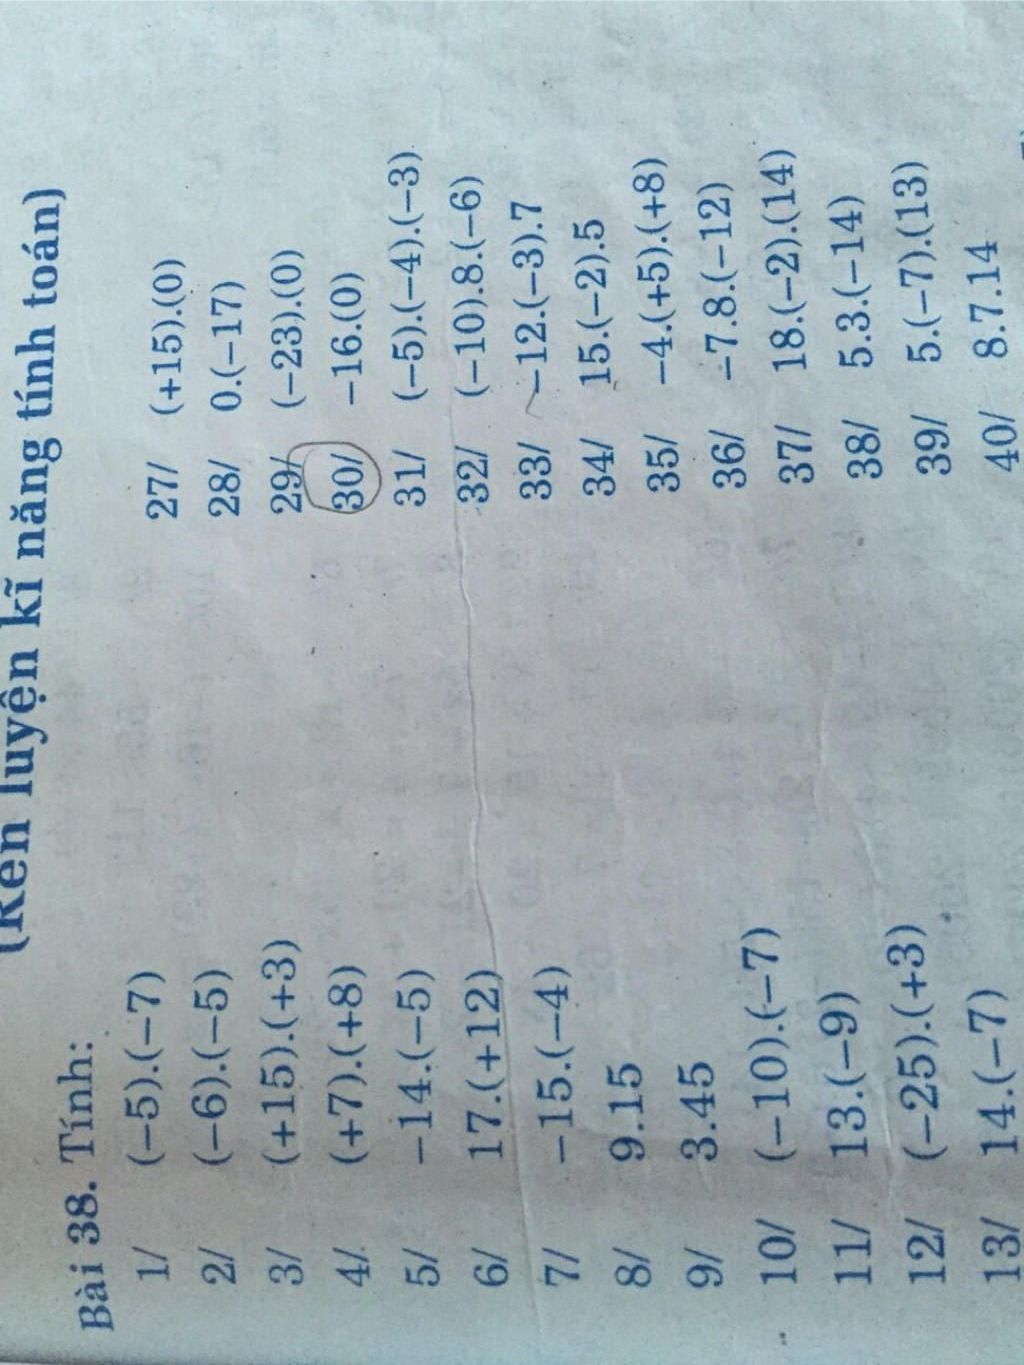 (Rèn luyện kĩ năng tính toán)
Bài 38. Tính:
1/ (−5).(−7)
2/ (−6).(−5)
3/ (+15).(+3)
4/. (+7).(+8)
5/ −14.(−5)
6/ 17.(+12)
7/ −15.(−4)
8/ 9.15
9/ 3.45
10/ (−10).(−7)
11/ 13.(−9)
12/ (−25).(+3)
13/ 14.(−7)
27/ (+15).(0)
28/ 0.(−17)
29/ (−23).(0)
30/ −16.(0)
31/ (−5).(−4).(−3)
32/ (−10).8.(−6)
33/ −12.(−3).7
34/ 15.(−2).5
35/ −4.(+5).(+8)
36/ −7.8.(−12)
37/ 18.(−2).(14)
38/ 5.3.(−14)
39/ 5.(−7).(13)
40/ 8.7.14